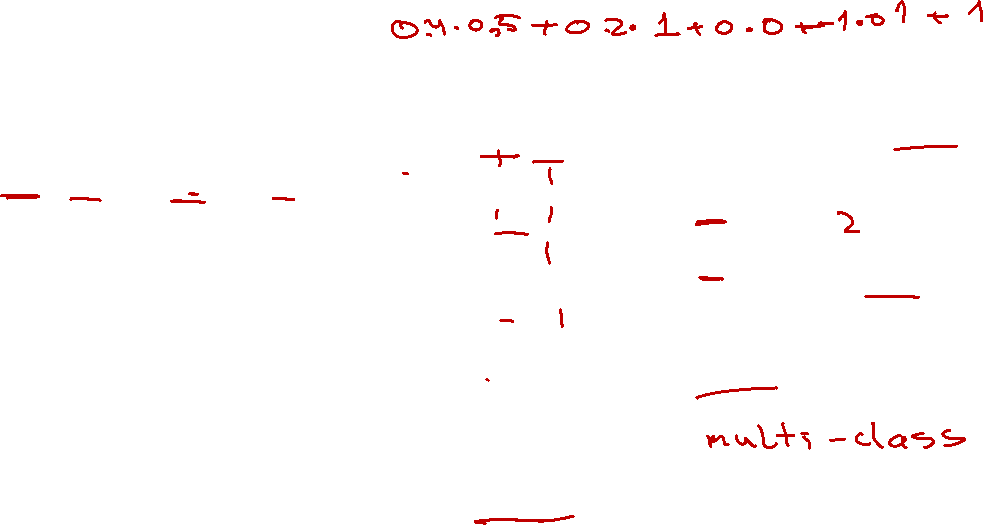 0.4.0.5 + 0.2.1 + 0.0 + 1.01 + 1
2
multi-class